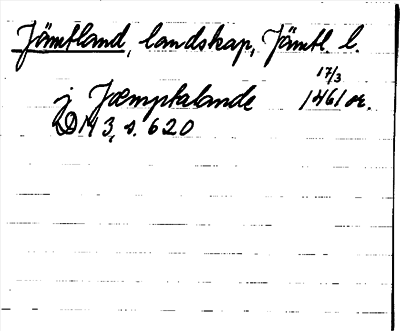 Jämtland, landskap, Jämtl. l.
17/3
j Jæmptalande 1461 or.
DN 3, s. 620